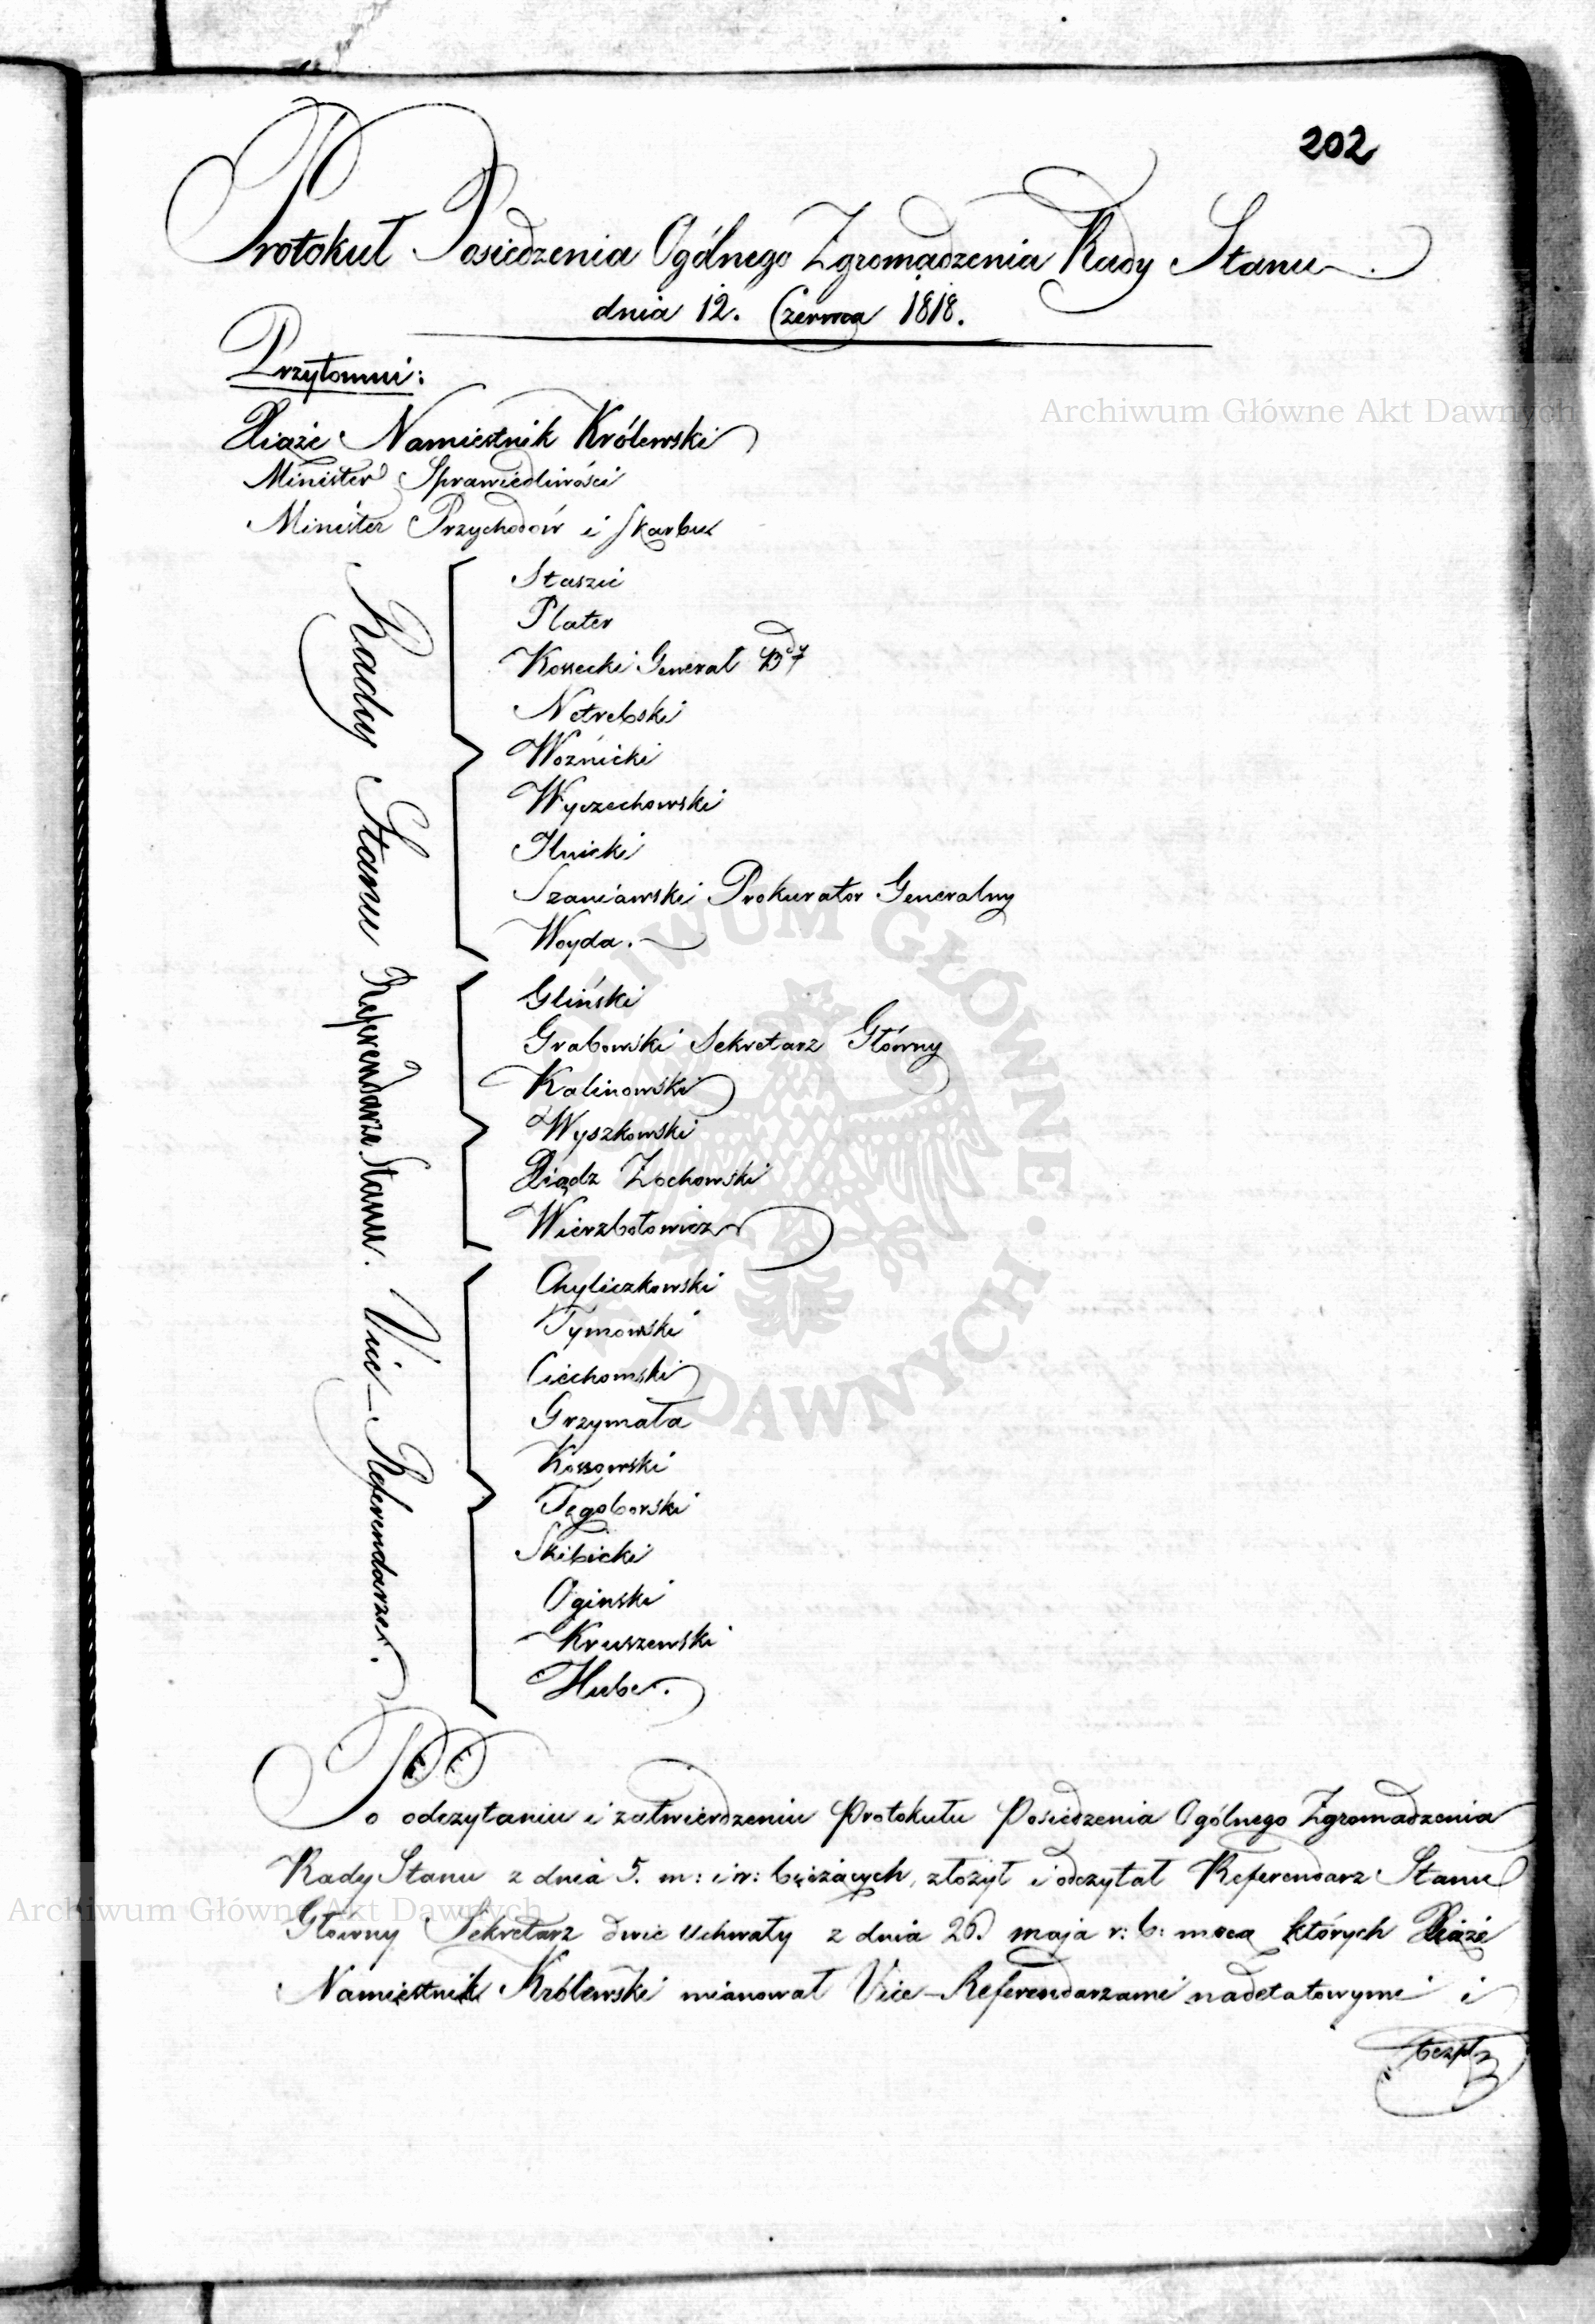 202
Protokuł Posiedzenia Ogólnego Zgromadzenia Rady Stanu
dnia 12. Czerwca 1818.
Przytomni:
Xiąże Namiestnik Królewski
Minister Sprawiedliwości
Minister Przychodów i Skarbu
Radcy Stanu
Staszic
Plater
Kossecki Generał
Netrebski
Woźnicki
Wyczechowski
Ilnicki
Szaniawski Prokurator Generalny
Woyda.
Referendarze Stanu.
Gliński
Grabowski Sekretarz Główny
Kalinowski
Wyszkowski
Xiądz Zochowski
Wierzbołowicz
Vice-Referendarze.
Chyliczkowski
Tymowski
Ciechomski
Grzymała
Kossowski
Tęgoborski
Skibicki
Oginski
Kruszewski
Hube.
Po odczytaniu i zatwierdzeniu Protokułu Posiedzenia Ogólnego Zgromadzenia
Rady Stanu z dnia 5. m: i r: bieżących, złożył i odczytał Referendarz Stanu
Główny Sekretarz dwie uchwały z dnia 26. maja r: b: mocą których Xiąże
Namiestnik Królewski mianował Vice-Referendarzami nadetatowymi i
bezpł
Archiwum Główne Akt Dawnych
Archiwum Główne Akt Dawnych
ARCHIWUM GŁÓWNE AKT DAWNYCH